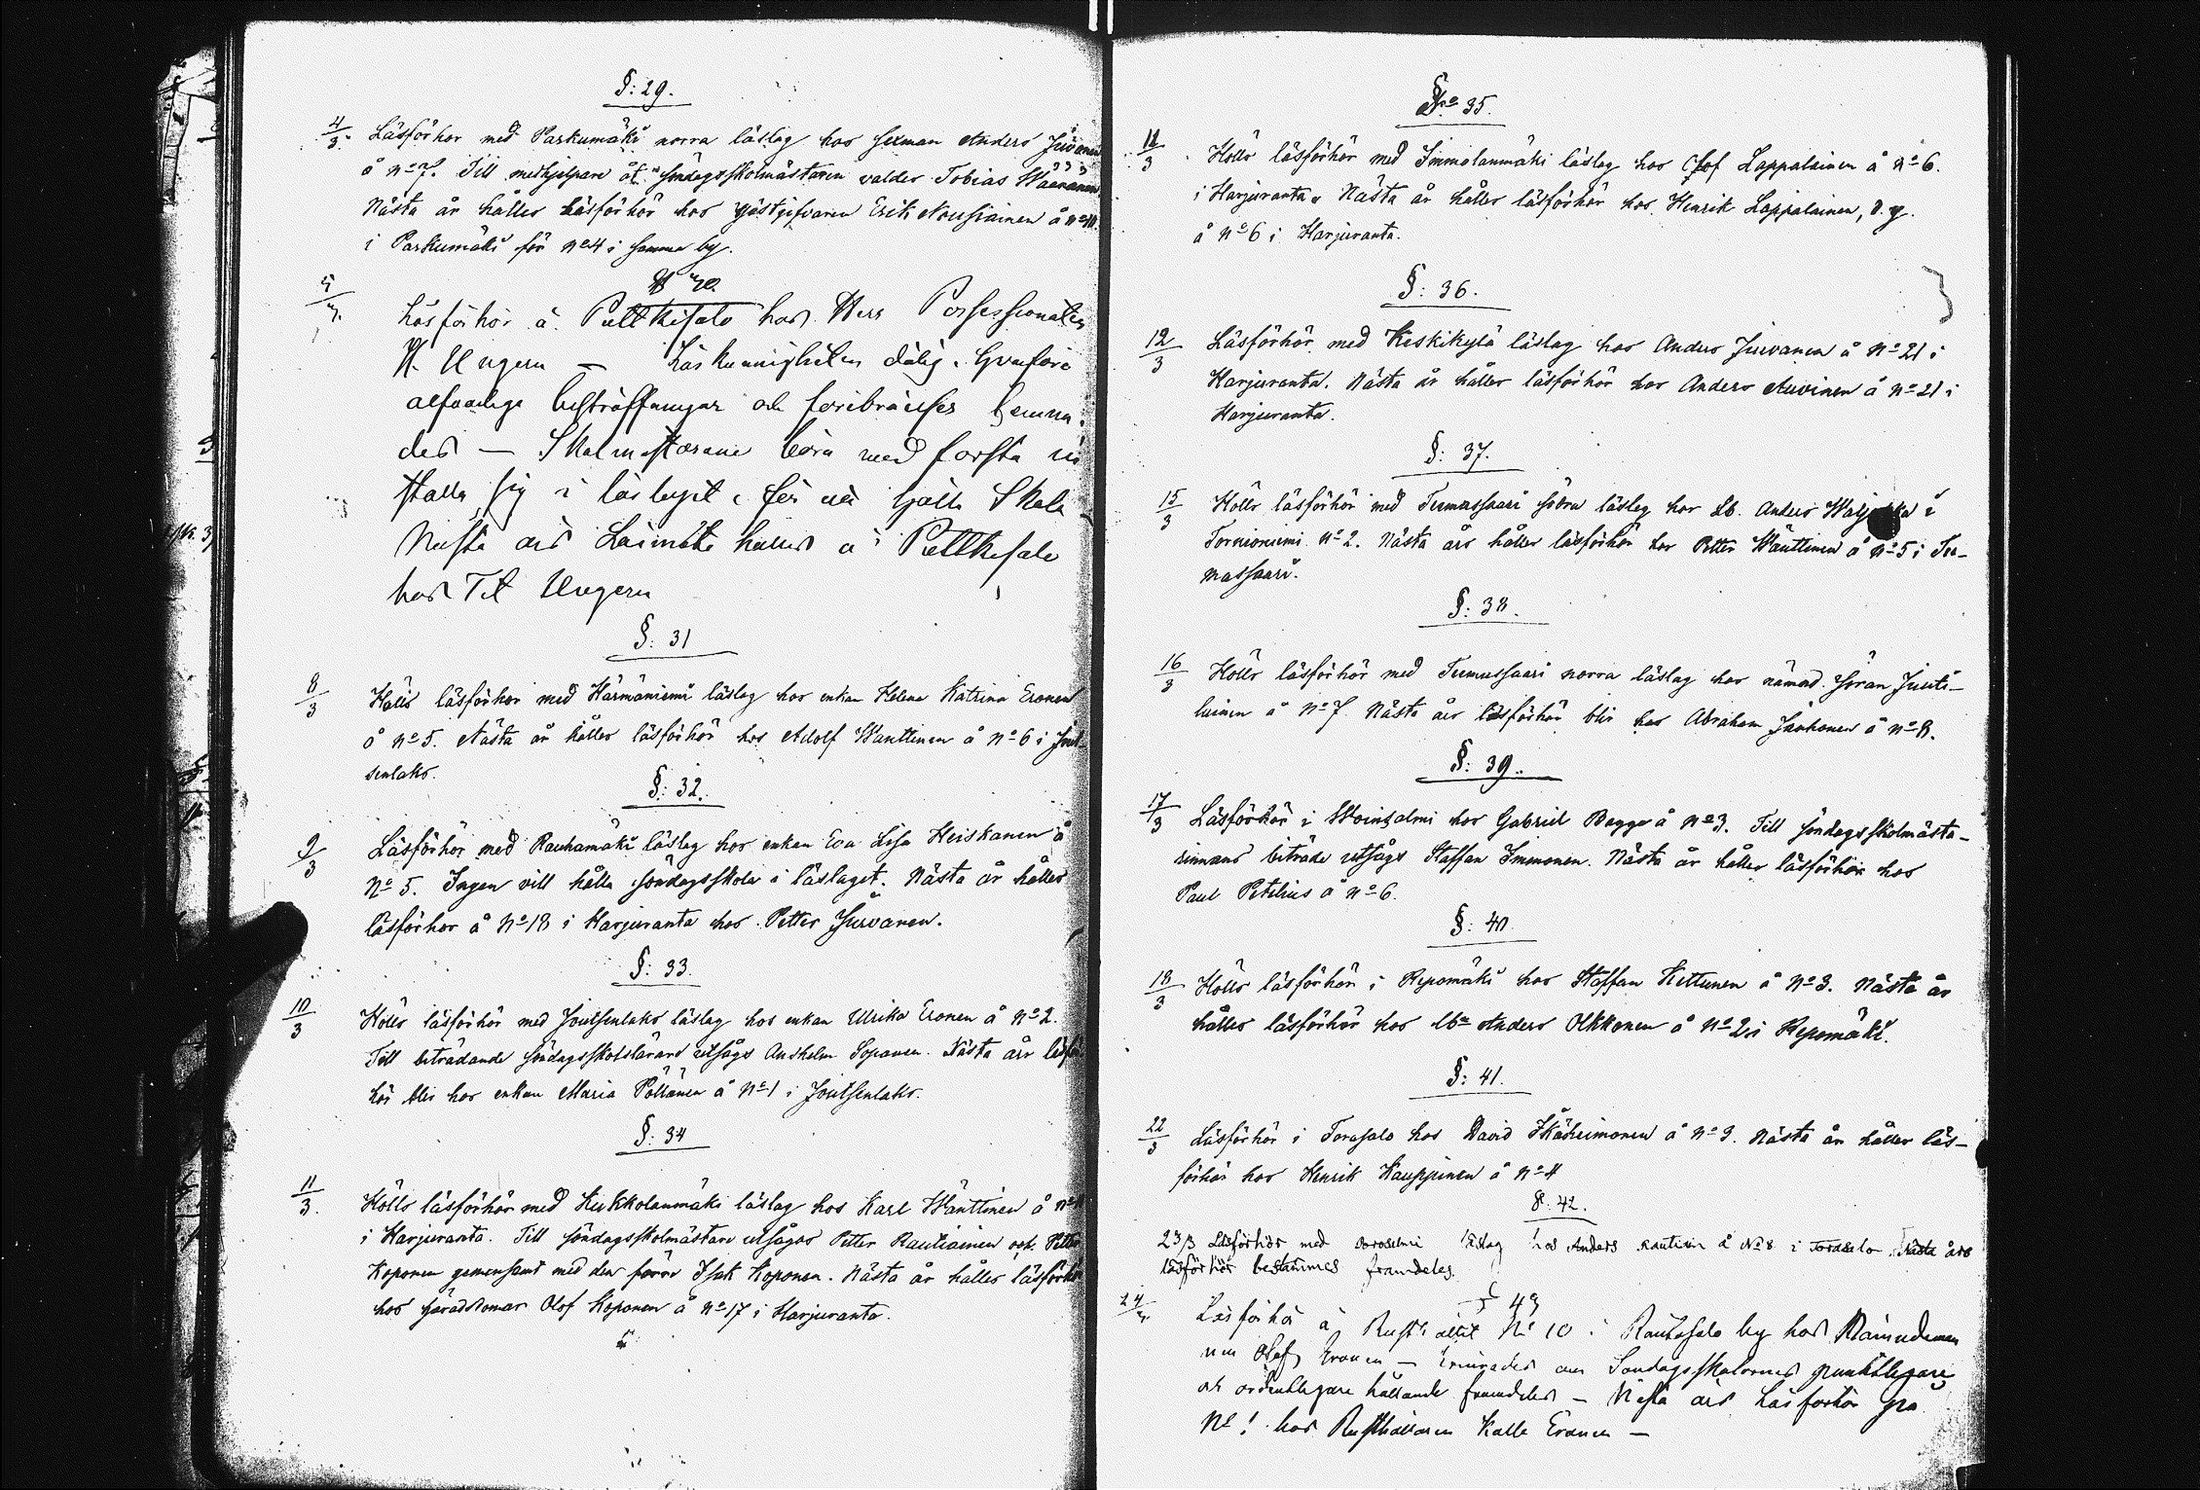 §: 29.
4/3. Läsförhör med Paskumäki norra läslag hos sexman Anders Juvonen
å No 7. Till medhjelpare åt söndagsskolmästaren valdes Tobias Väänänen
Nästa år hålles läsförhör hos gästgifvaren Erik Nousiainen å No
i Paskumäki för No 4 i samma by.
§ 30.
5/3. Läsförhör å Putkisalo hos Herr Possessionaten
H. Ungern — Läskunnigheten dålig. Hvarföre
alfvarliga bestraffningar och förebråelser
des — Skolmästarene böra med första in
ställa sig i läslaget för att hålla Skola
Nästa års Läsmöte hålles å Putkisalo
hos Tit Ungern
§: 31
8/3 Hölls läsförhör med Härmäniemi läslag hos enkan Helena Katrina Eronen
å No 5. Nästa år hålles läsförhör hos Adolf Wänttinen å No 6 i Jout-
senlaks.
§: 32.
9/3 Läsförhör med Rauhamäki läslag hos enkan Eva Lisa Heiskanen å
No 5. Ingen vill hålla söndagsskola i läslaget. Nästa år hålles
läsförhör å No 18 i Harjuranta hos Petter Juvanen.
§: 33.
10/3 Hölls läsförhör med Joutsenlaks läslag hos enkan Ulrika Eronen å No 2.
Till biträdande söndagsskolslärare utsågs Anshelm Sopanen. Nästa års läsför
hör blir hos enkan Maria Pöllänen å No 1 i Joutsenlaks.
§: 34
11/3. Hölls läsförhör med Kukkolanmäki läslag hos Karl Wänttinen å No
i Harjuranta. Till söndagsskolmästare utsågos Petter Rautiainen och Petter
Koponen gemensamt med den förre Isak Koponen. Nästa år hålles läsförhör
hos häradsdomar Olof Koponen å No 17 i Harjuranta.
§no 35.
11/3 Hölls läsförhör med Immolanmäki läslag hos Olof Lappalainen å No 6.
i Harjuranta. Nästa år hålles läsförhör hos Henrik Lappalainen, d. y.
å No 6 i Harjuranta.
§: 36.
12/3 Läsförhör med Keskikylä läslag hos Anders Juvanen å No 21 i
Harjuranta. Nästa år hålles läsförhör hos Anders Auvinen å No 21 i
Harjuranta.
§: 37.
15/3 Hölls läsförhör med Tuunassaari södra läslag hos Lb. Anders i
Tornioniemi No 2. Nästa års hålles läsförhör hos Petter Wänttinen å No 5 i Tu-
nassaari.
§: 38.
16/3 Hölls läsförhör med Tuunassaari norra läslag hos nämnd. Göran Junti-
lainen å No 7. Nästa års läsförhör blir hos Abraham Jänhonen å No 8.
§: 39.
17/3 Läsförhör i Woinsalmi hos Gabriel Bagge å No 3. Till söndagsskolmästa-
rinnans biträde utsågs Staffan Immonen. Nästa år hålles läsförhör hos
Paul Petelius å No 6.
§: 40.
18/3 Hölls läsförhör i Repomäki hos Staffan Kettunen å No 3. Nästa år
hålles läsförhör hos Anders Olkkonen å No 2 i Repomäki.
§: 41.
22/3 Läsförhör i Torasalo hos David Ikäheimonen å No 3. Nästa år hålles läs-
förhör hos Henrik Kauppinen å No 4
§. 42.
23/3 Läsförhör med läslag hos Anders Rautiain å No 8 i Torasalo. Nästa års
läsförhör bestämmes framdeles.
§ 43
24/3. Läsförhör å Rusthållet No 10 i Rantasalo by hos Nämndeman
nen Olof Eronen — Erinrades om Söndagsskolornes punktligare
och ordentligare hållande framdeles — Nästa års Läsförhör på
No 1 hos Rusthållaren Kalle Eronen —